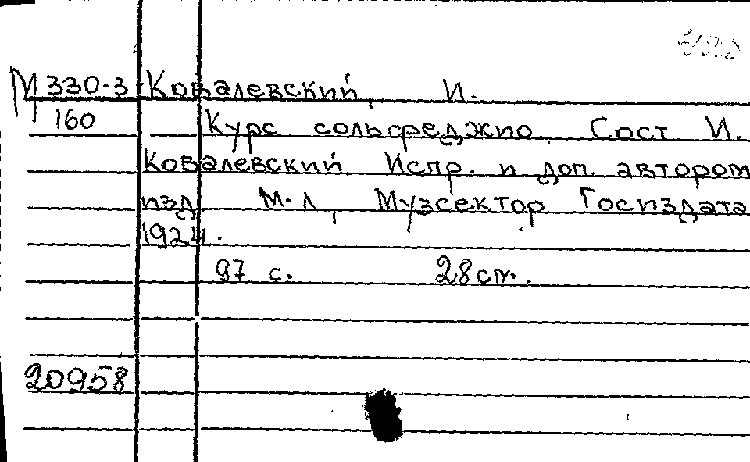 М 330-3 Ковалевский, И.
160 Курс сольфеджио. Сост. И.
Ковалевский Испр. и доп. автором
изд. М.-Л., Музсектор Госиздата
1924.
97 с. 28 см.
20958